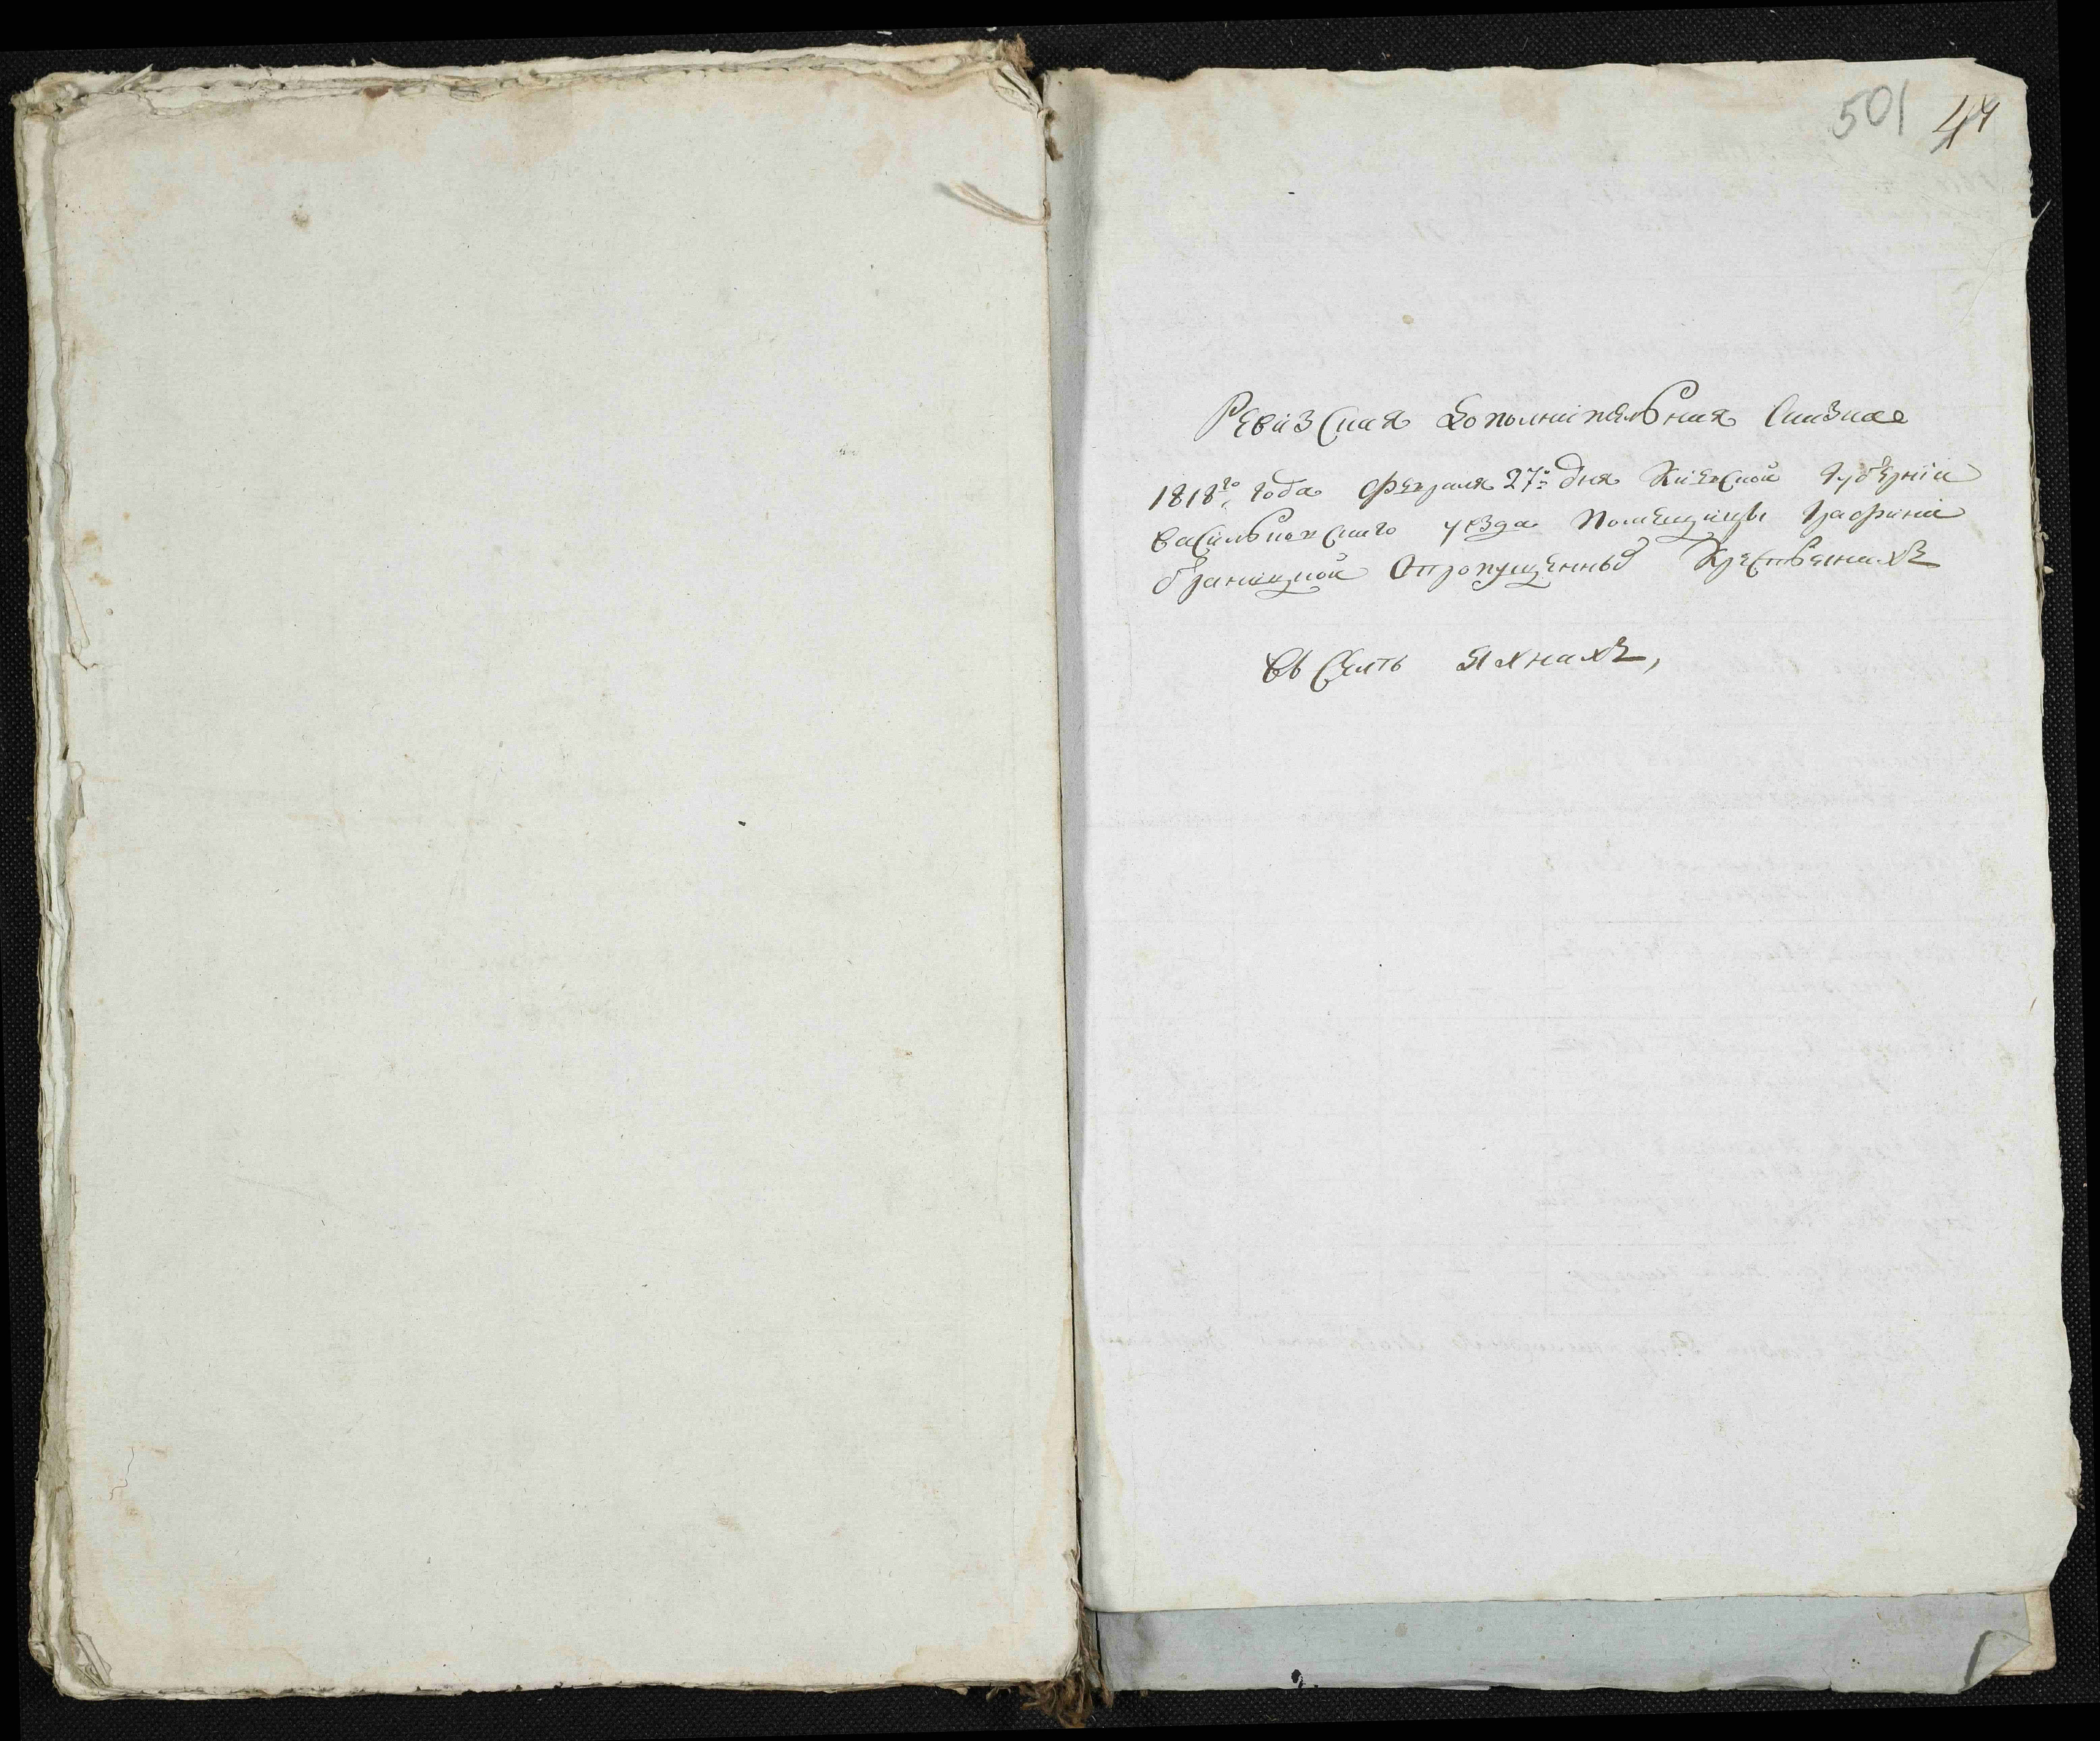 501 44
Ревизская дополнительная Сказка
1818го года Февраля 27го дня Киевской Губернiи
Васильковскаго уезда Помещицы Графини
Браницкой О пропущенных Крестьянахъ
Въ Селѣ Яхнахъ,